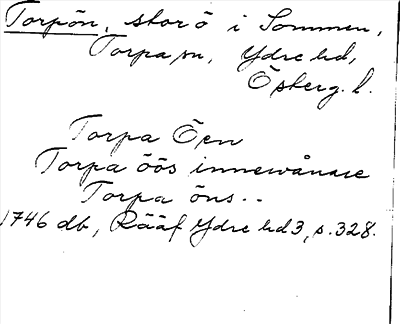 Torpön, stor ö i Sommen,
Torpa sn, Ydre hd,
Österg. l.
Torpa Öen
Torpa öös innewånare
Torpa öns..
1746 db, Rääf Ydre hd 3, s. 328.